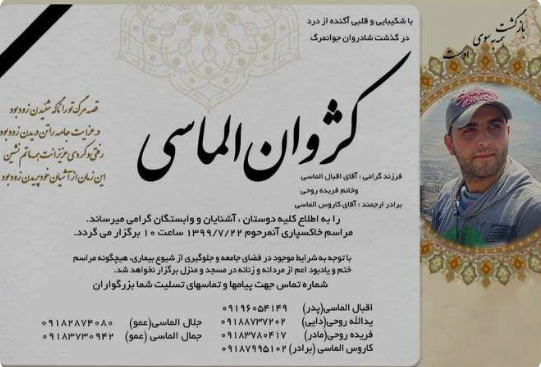 بازگشت همه به سوی اوست
با شکیبایی و قلبی آکنده از درد
در گذشت شادروان جوانمرگ
کژوان الماسی
قصه مرگ تو را ناگه شنیدن زود بود
در عزایت جامه را تن دریدن زود بود
رفتی و کردی عزیزانت به ماتم نشین
این زمان از آشیان خود پریدن زود بود
فرزند گرامی : آقای اقبال الماسی
وخانم فریده روحی
برادر ارجمند : آقای کاروس الماسی
را به اطلاع کلیه دوستان ، آشنایان و وابستگان گرامی میرساند.
مراسم خاکسپاری آنمرحوم ۱۳۹۹/۷/۲۲ ساعت ۱۰ برگزار می گردد.
با توجه به شرایط موجود در فضای جامعه و جلوگیری از شیوع بیماری، هیچگونه مراسم
ختم و یادبود اعم از مردانه و زنانه در مسجد و منزل برگزار نخواهد شد.
شماره تماس جهت پیامها و تماسهای تسلیت شما بزرگواران
اقبال الماسی(پدر) ۰۹۱۹۶۰۵۴۱۴۹
یدالله روحی(دایی) ۰۹۱۸۸۷۳۷۲۰۲ جلال الماسی(عمو) ۰۹۱۸۲۸۷۴۰۸۰
فریده روحی(مادر) ۰۹۱۸۳۷۸۰۴۱۷ جمال الماسی (عمو) ۰۹۱۸۳۷۳۰۹۴۲
کاروس الماسی (برادر) ۰۹۱۸۷۹۹۵۱۰۲